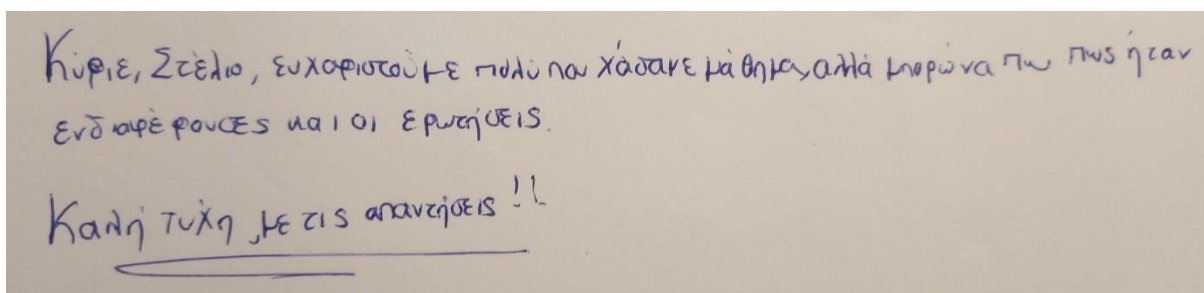 Κύριε, Στέλιο, ευχαριστούμε πολύ που χάσαμε μάθημα, αλλά μπορώ να πω πως ήταν
ενδιαφέρουσες και οι ερωτήσεις.
Καλή τύχη, με τις απαντήσεις!!